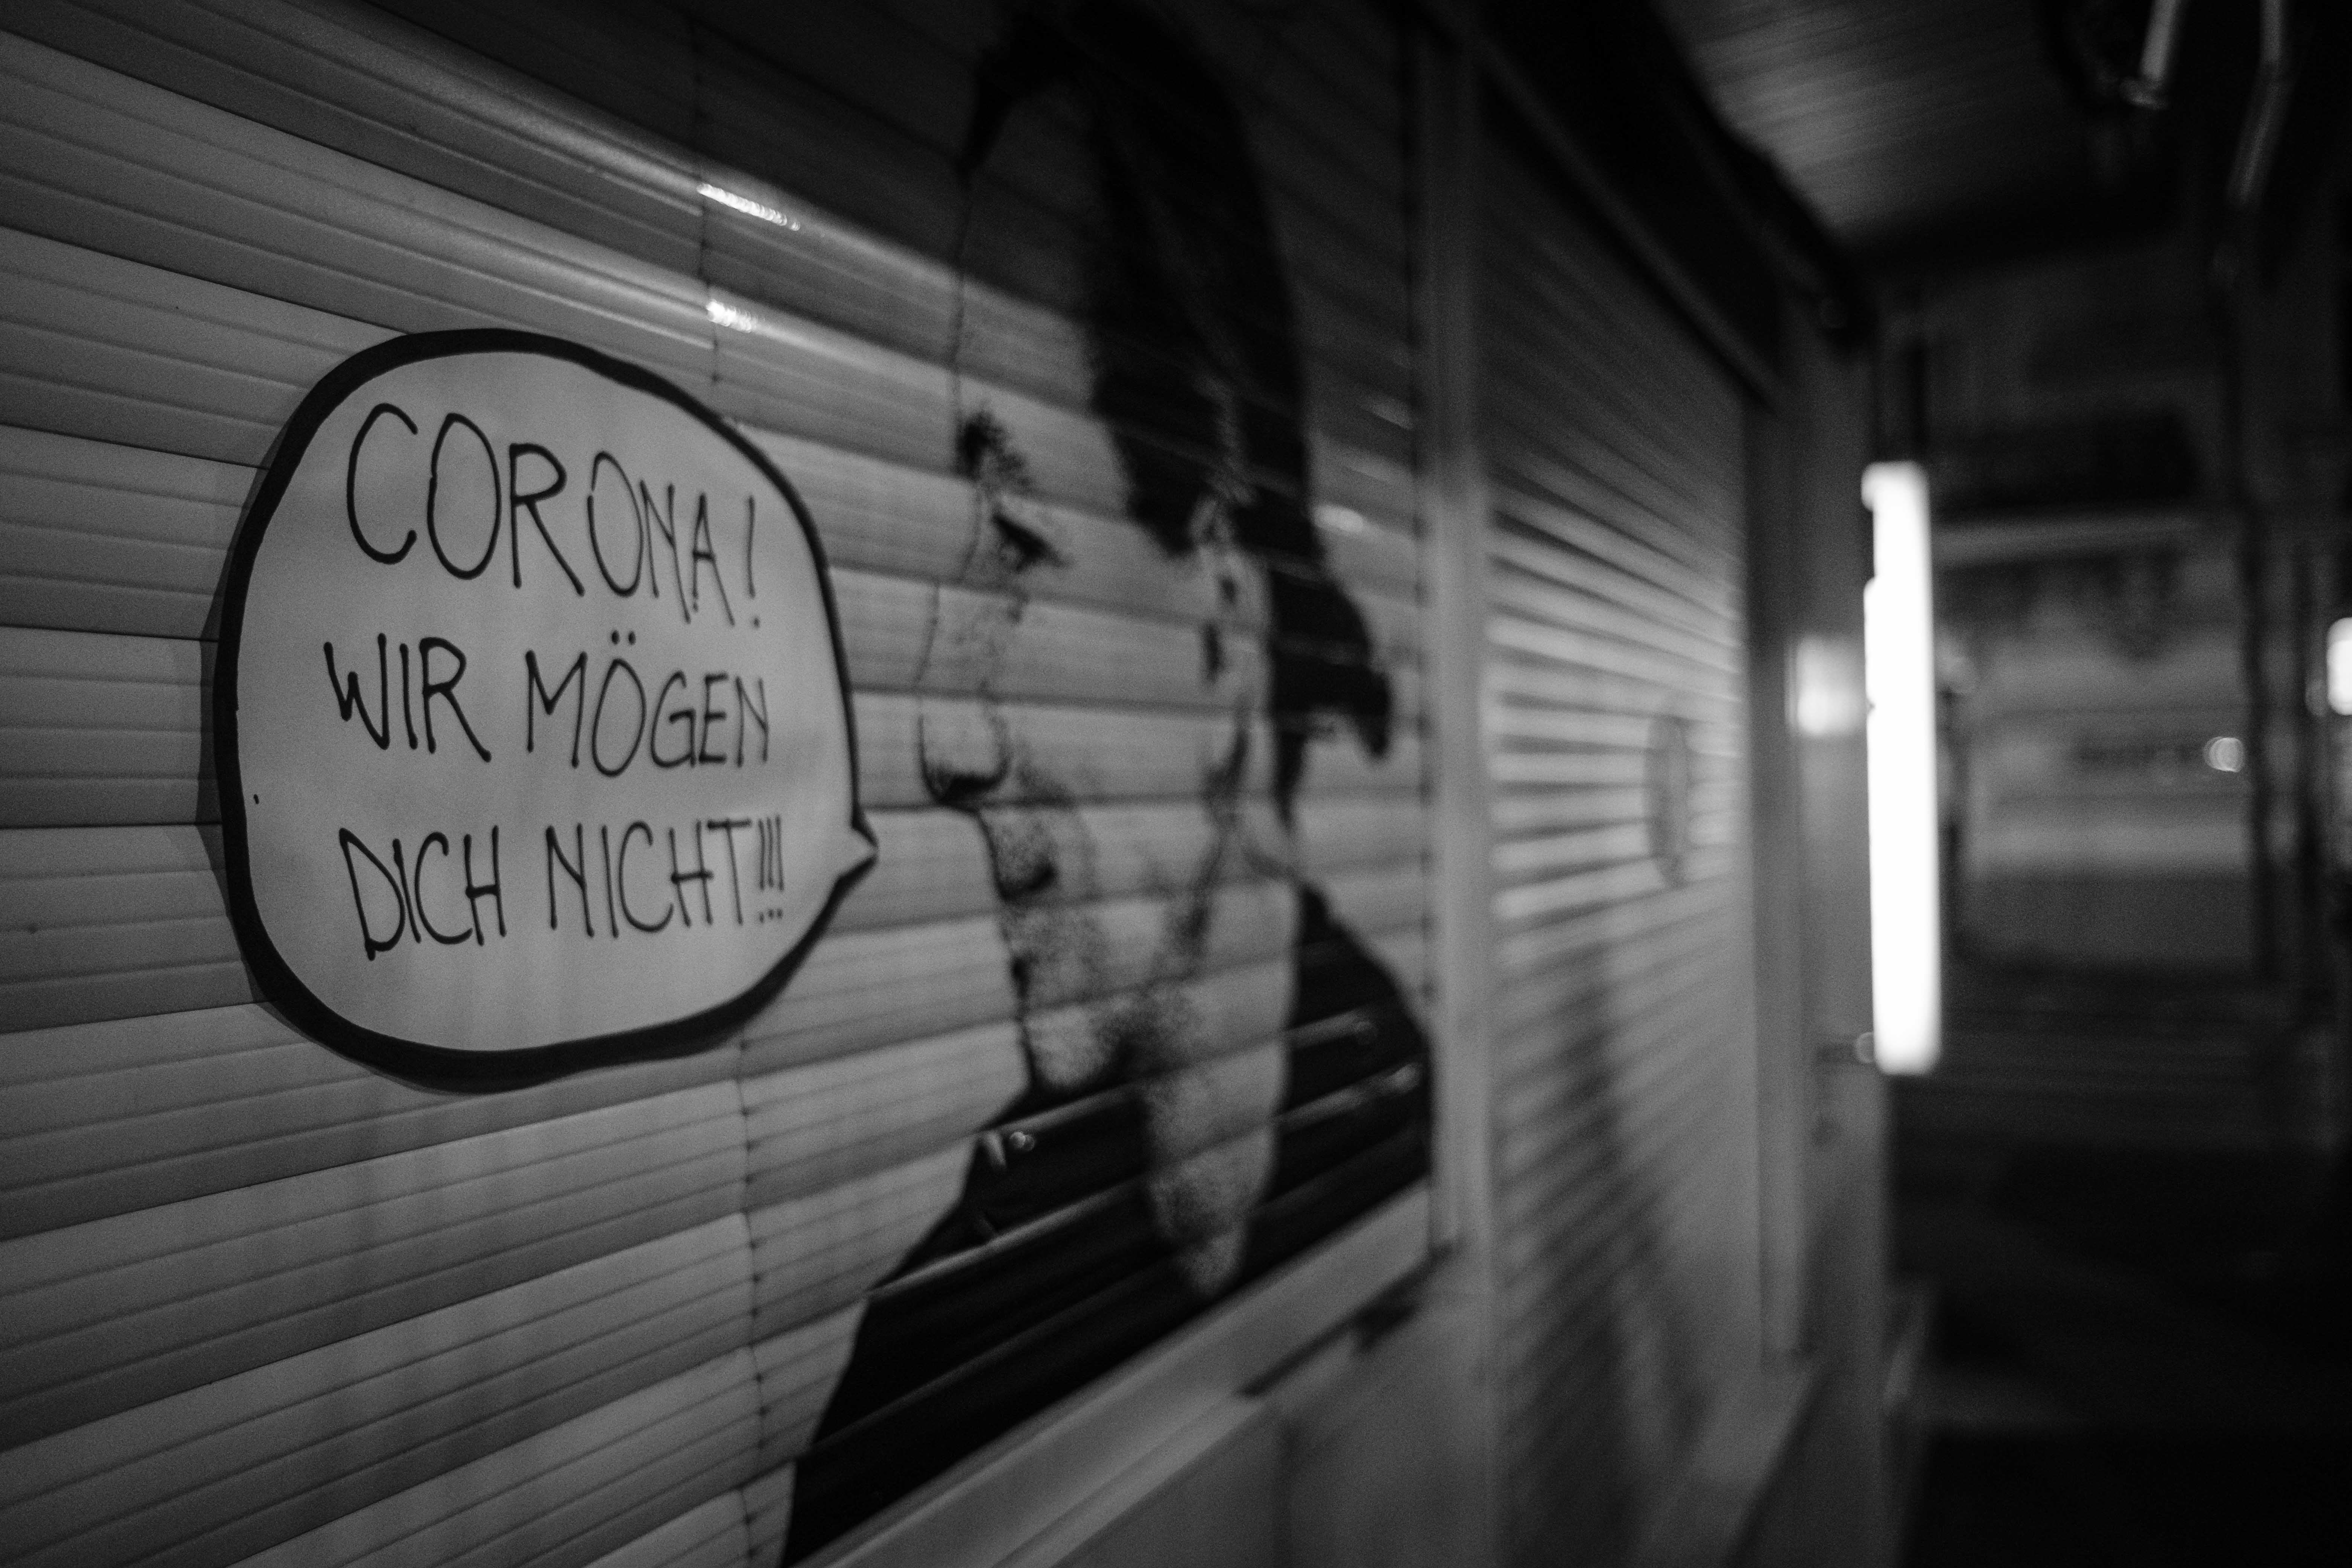 CORONA!
WIR MÖGEN
DICH NICHT!!!